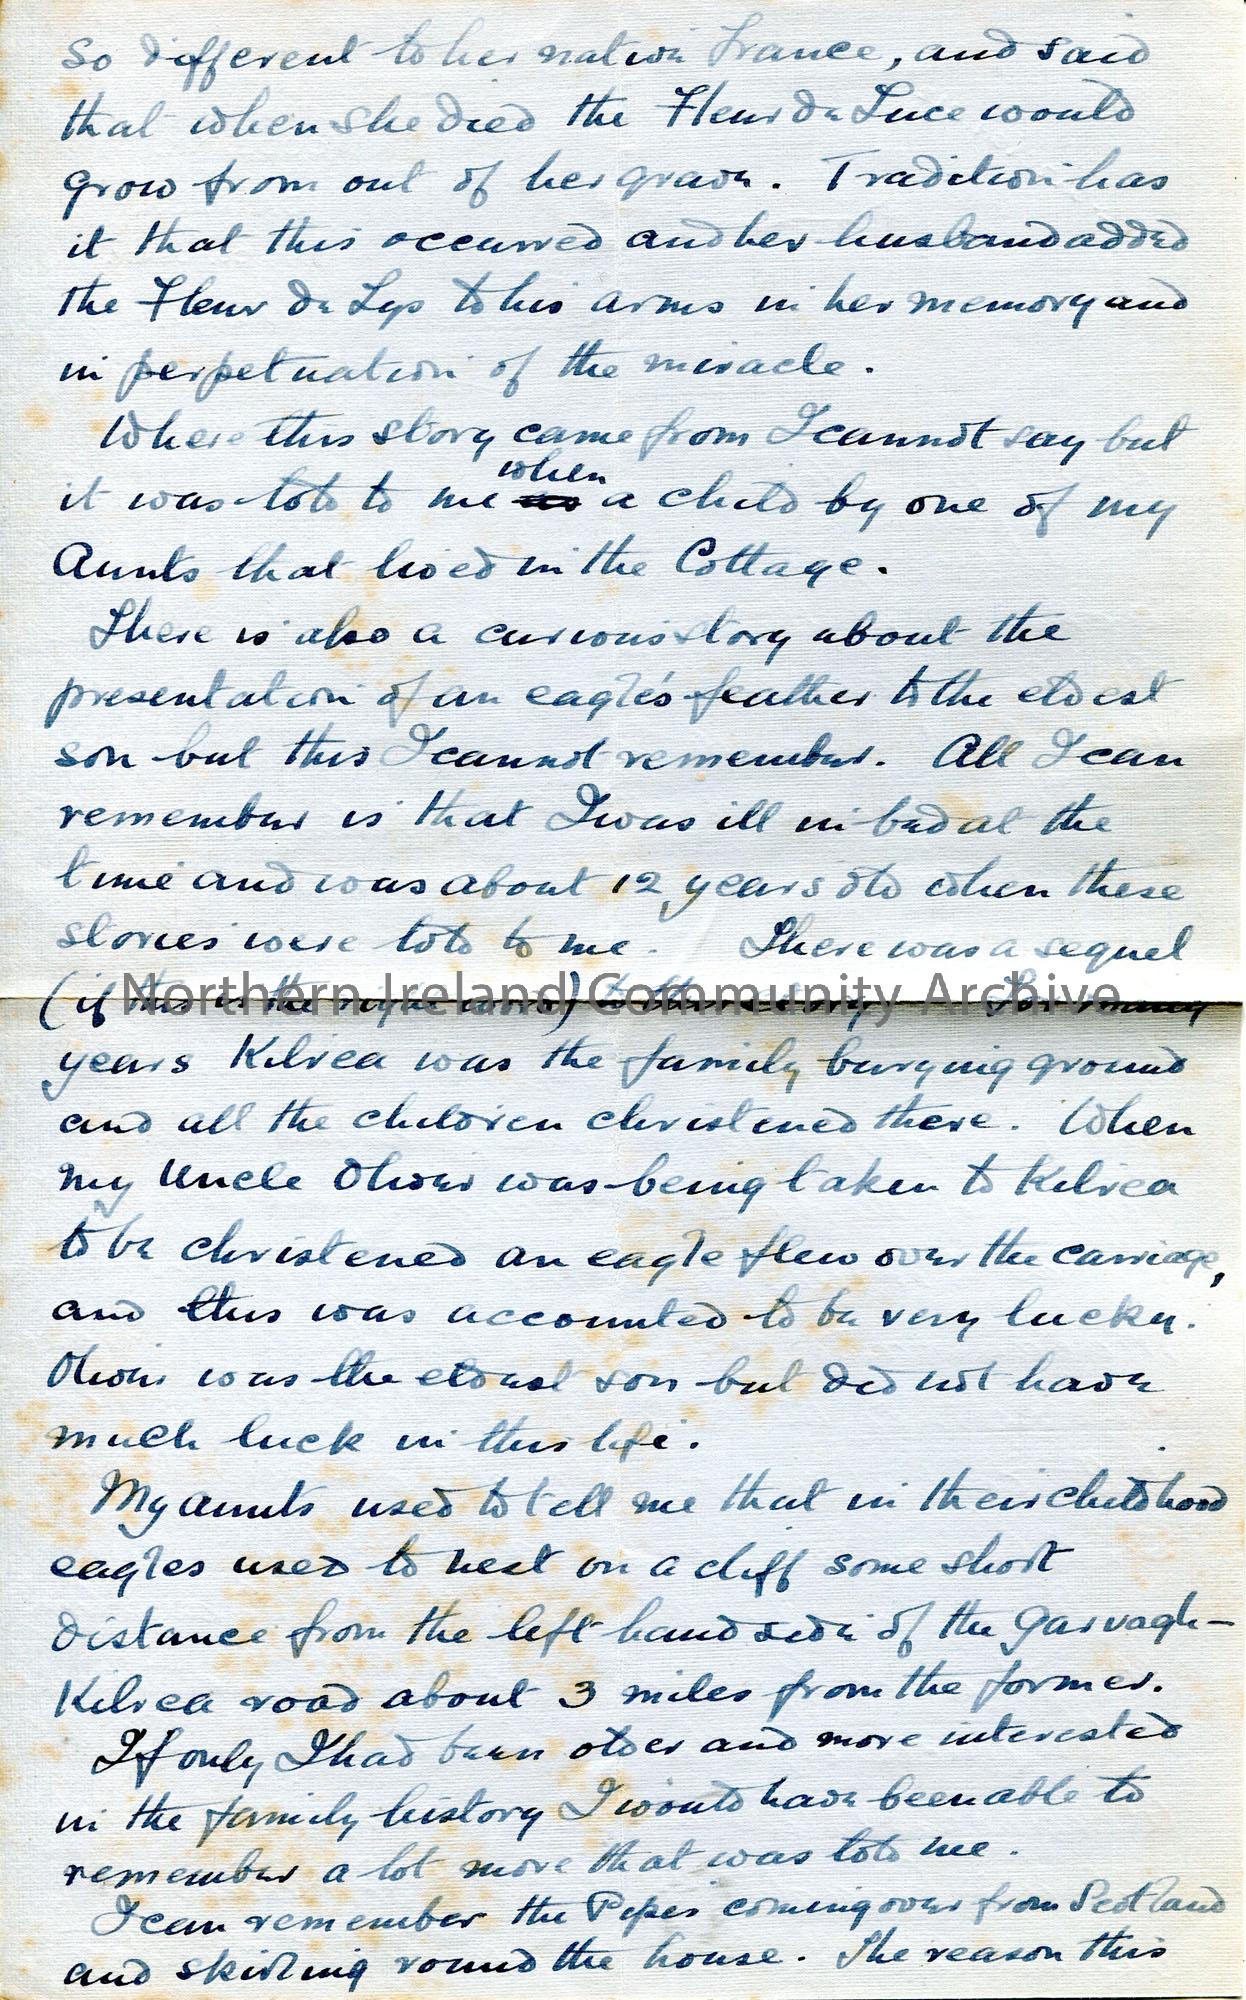 So different to her native France, and said
that when she died the Fleur de Luce would
grow from out of her grave. Tradition has
it that this occurred and her husband added
the Fleur de Lys to his arms in her memory and
in perpetuation of the miracle.
Where this story came from I cannot say but
when
it was told to me as a child by one of my
Aunts that lived in the Cottage.
There is also a curious story about the
presentation of an eagle's feather to the eldest
son but this I cannot remember. All I can
remember is that I was ill in bed at the
time and was about 12 years old when these
stories were told to me. There was a sequel
(if this is the right word) to this story For many
Northern Ireland Community Archive
years Kilrea was the family burying ground
and all the children christened there. When
my Uncle Oliver was being taken to Kilrea
to be christened an eagle flew over the carriage,
and this was accounted to be very lucky.
Oliver was the eldest son but did not have
much luck in this life.
My aunts used to tell me that in their childhood
eagles used to nest on a cliff some short
distance from the left hand side of the Garvagh-
Kilrea road about 3 miles from the former.
If only I had been older and more interested
in the family history I would have been able to
remember a lot more that was told me.
I can remember the Piper coming over from Scotland
and skirling round the house. The reason this